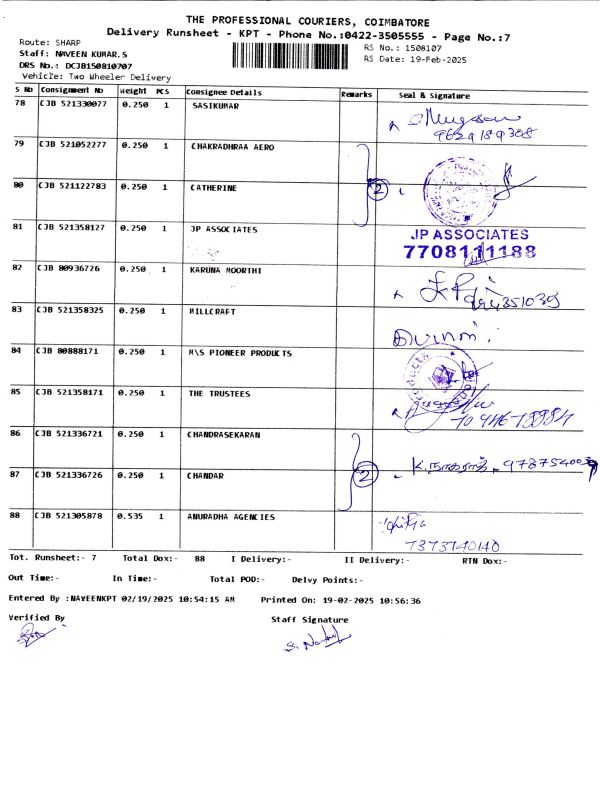 THE PROFESSIONAL COURIERS, COIMBATORE
Delivery Runsheet - KPT - Phone No.:0422-3505555 - Page No.:7
Route: SHARP
RS No.: 1508107
Staff: NAVEEN KURAR.S
RS Date: 19-Feb-2025
DRS No.: DCJB150810707
Vehicle: Two Wheeler Delivery
S No Consignment No Weight PCS Consignee Details Remarks Seal & Signature
78 CJB 521330077 0.250 1 SASIKUMAR
9629189308
79 CJB 521052277 0.250 1 CHAKRADHRAA AERO
80 CJB 521122783 0.250 1 CATHERINE 2
81 CJB 521358127 0.250 1 JP ASSOCIATES JP ASSOCIATES
7708111188
82 CJB 80936726 0.250 1 KARUNA MOORTHI
83 CJB 521358325 0.250 1 MILLCRAFT
84 CJB 80888171 0.250 1 M\S PIONEER PRODUCTS
85 CJB 521358171 0.250 1 THE TRUSTEES
86 CJB 521336721 0.250 1 CHANDRASEKARAN
87 CJB 521336726 0.250 1 CHANDAR 2
88 CJB 521305878 0.535 1 ANURADHA AGENCIES
7373740140
Tot. Runsheet:- 7 Total Dox:- 88 I Delivery:- II Delivery:- RTN Dox:-
Out Time:- In Time:- Total POD:- Delvy Points:-
Entered By :NAVEENKPT 02/19/2025 10:54:15 AM Printed On: 19-02-2025 10:56:36
Verified By Staff Signature